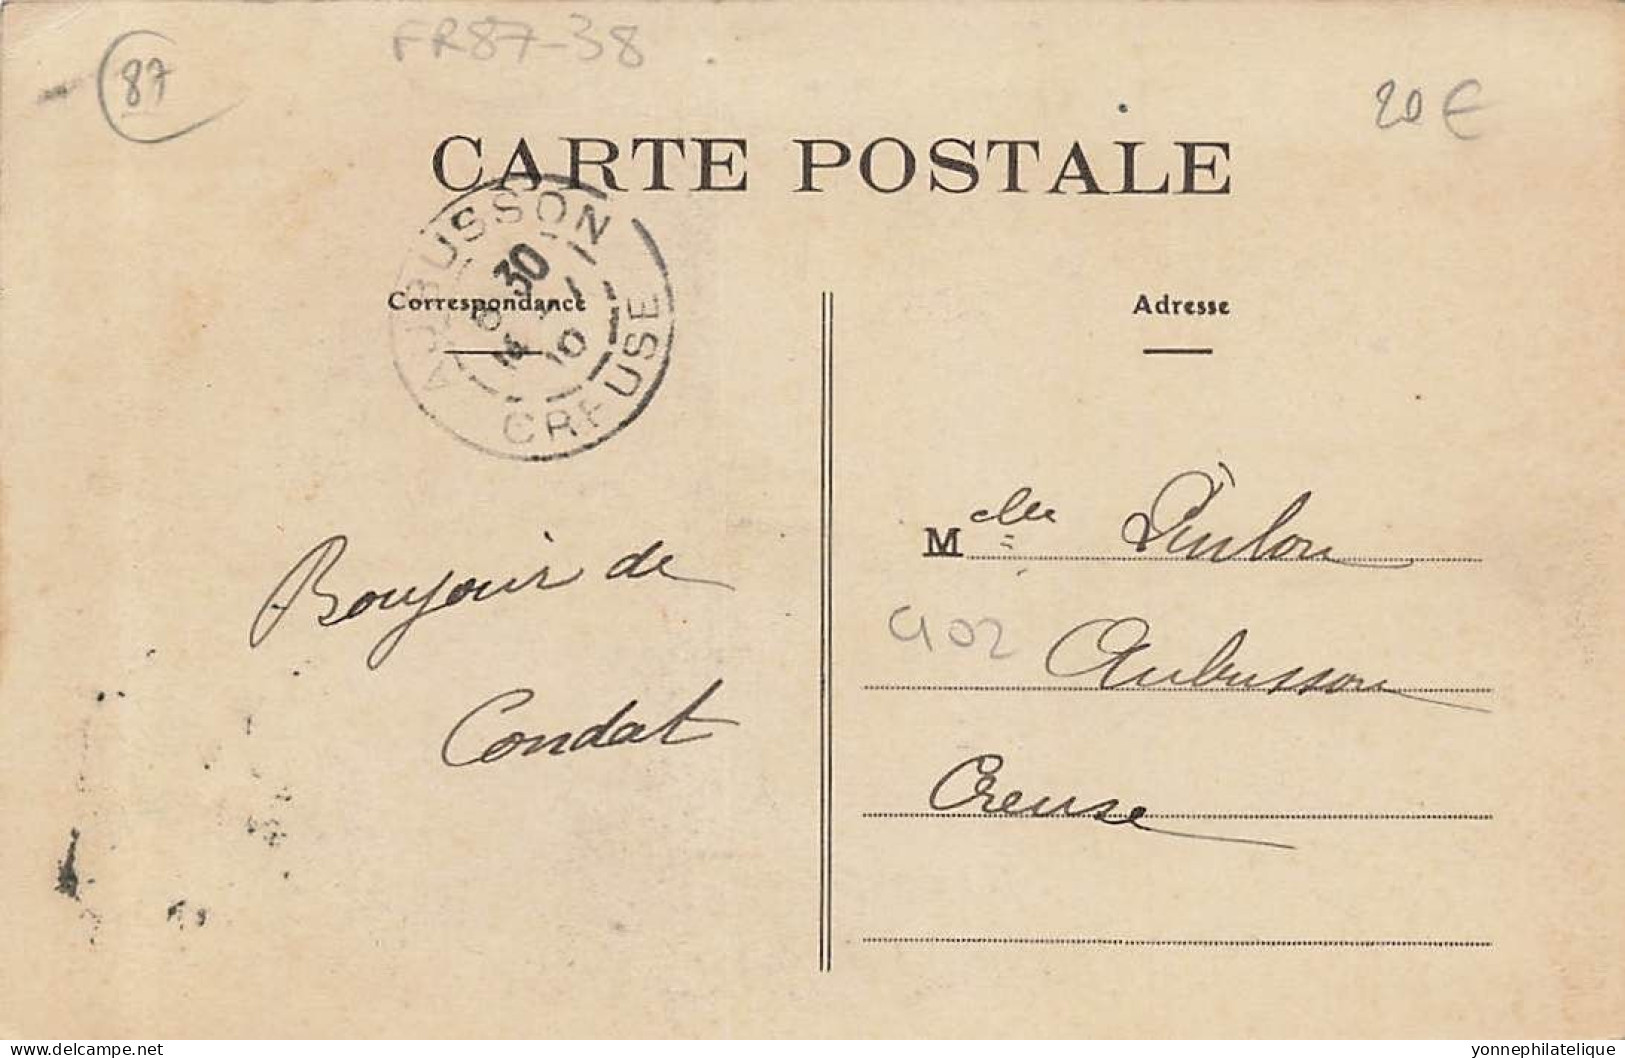 87
FR87-38
20 €
CARTE POSTALE
AUBUSSON
30
10
CREUSE
Correspondance
Adresse
Melle
Bonjour de
Condat
C102
Aubusson
Creuse
delcampe.net
yonnephilatelique